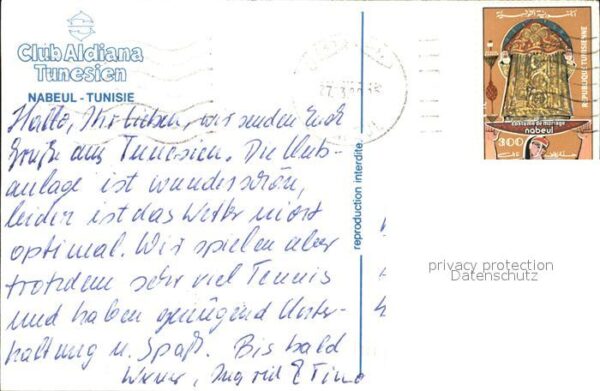 Club Aldiana
Tunesien
NABEUL - TUNISIE
Hallo, Ihr Lieben, wir senden Euch
Grüße aus Tunesien. Die Club-
anlage ist wunderschön,
leider ist das Wetter nicht
optimal. Wir spielen aber
trotzdem sehr viel Tennis
und haben genügend Unter-
haltung u. Spaß. Bis bald
Werner, Ingrid & Timo
reproduction interdite.
27.3
REPUBLIQUE TUNISIENNE
costume de mariage
nabeul
300
privacy protection
Datenschutz